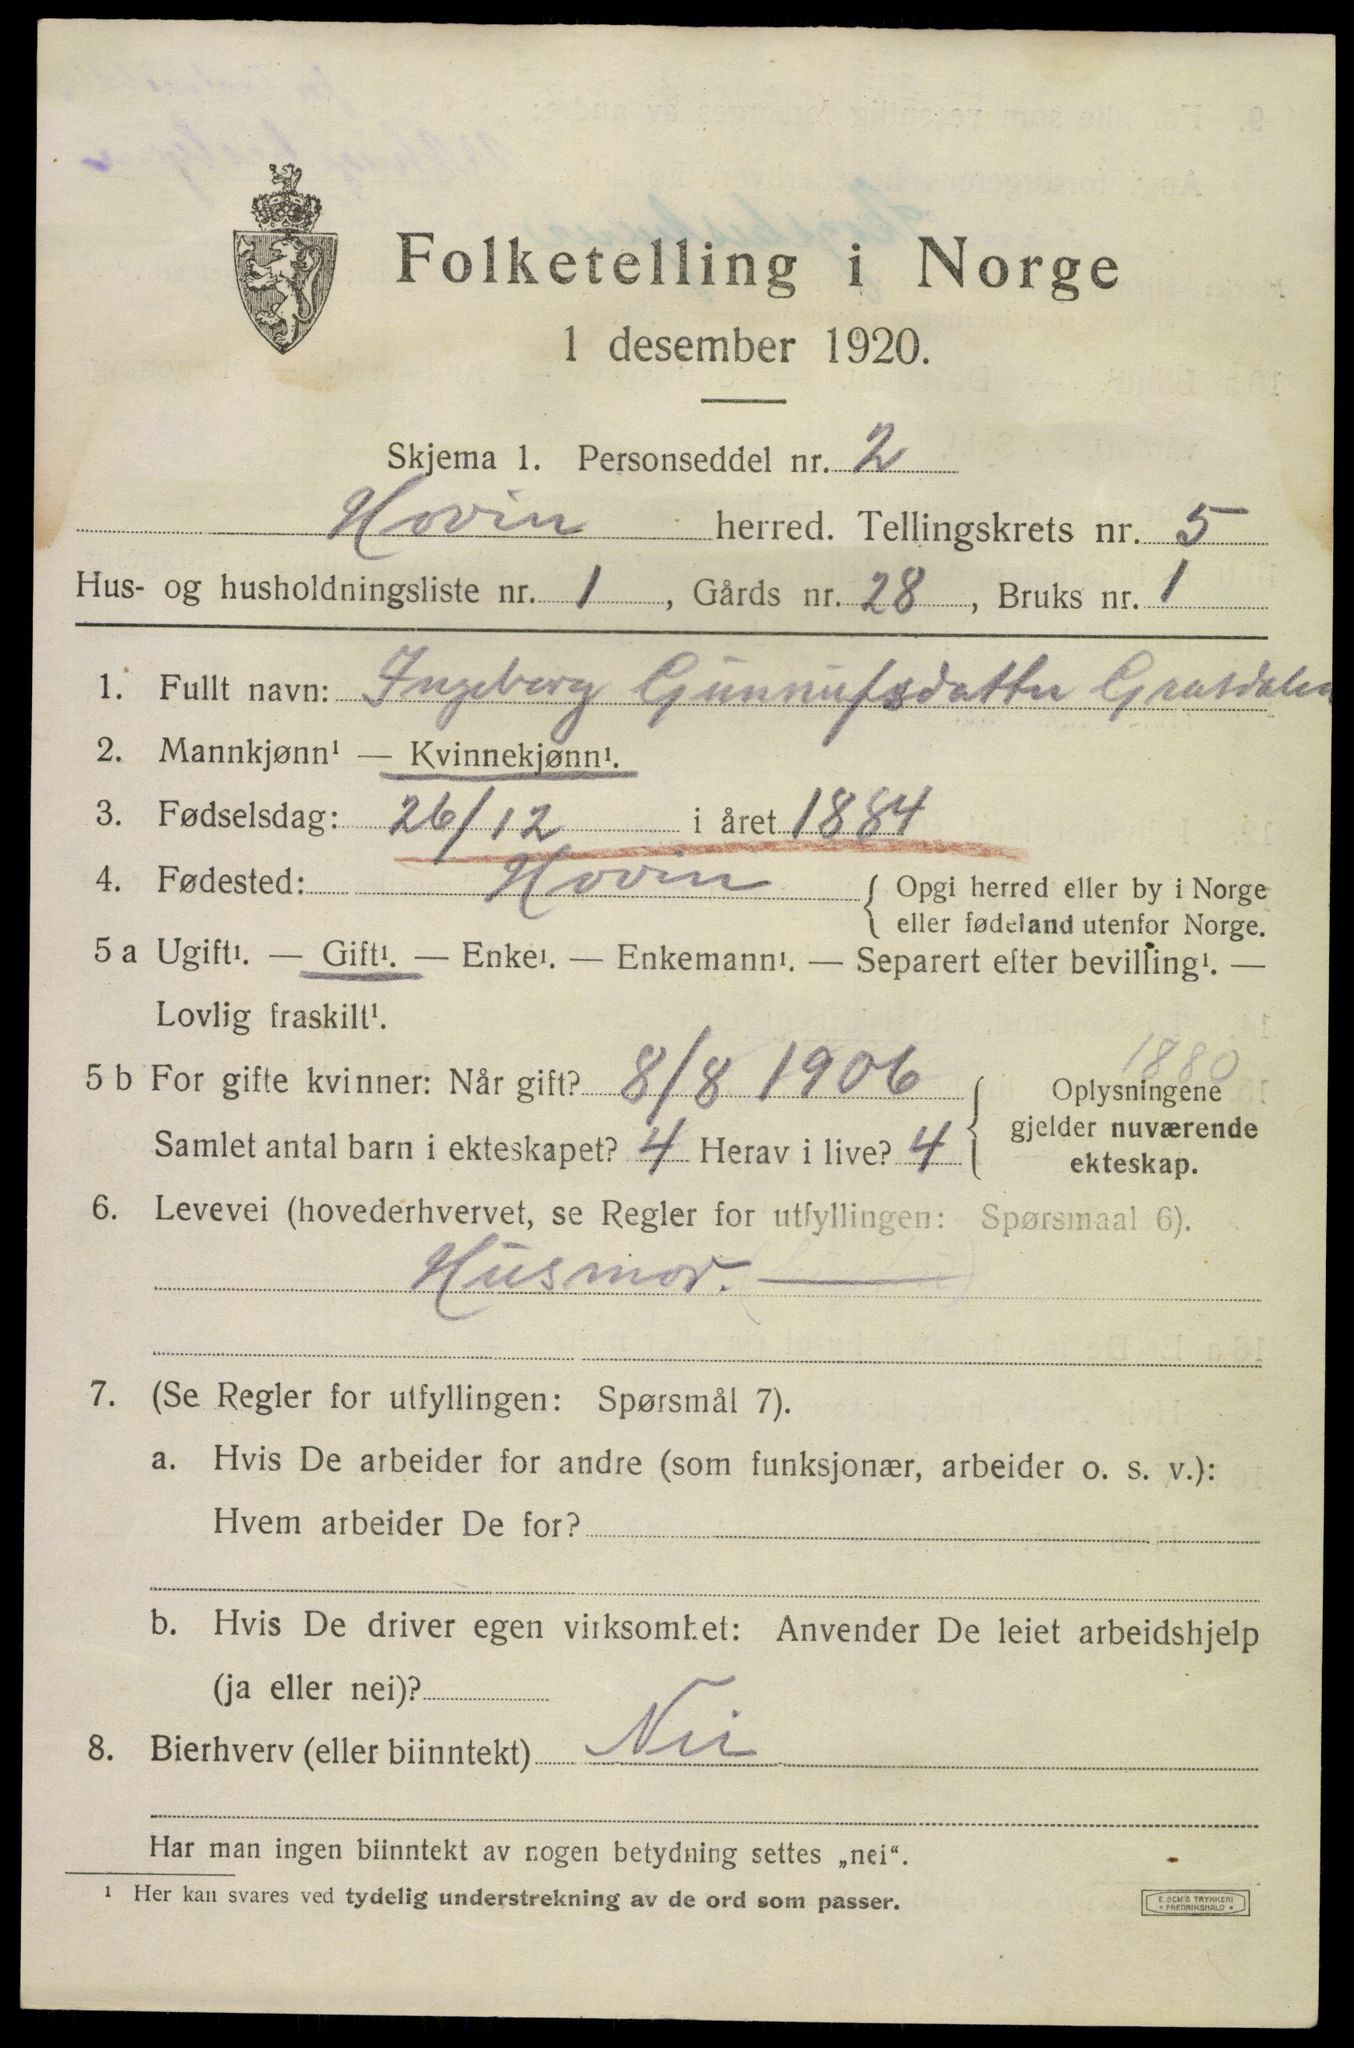 Folketelling i Norge
1 desember 1920.
Skjema 1. Personseddel nr. 2
Hovin herred. Tellingskrets nr. 5
Hus- og husholdningsliste nr. 1, Gårds nr. 28, Bruks nr. 1
1. Fullt navn: Ingeborg Gunnufsdatter Grasdalen
2. Mannkjønn¹ — Kvinnekjønn¹.
3. Fødselsdag: 26/12 i året 1884
4. Fødested: Hovin { Opgi herred eller by i Norge
eller fødeland utenfor Norge.
5 a Ugift¹. — Gift¹. — Enke¹. — Enkemann¹. — Separert efter bevilling¹. —
Lovlig fraskilt¹.
1880
5 b For gifte kvinner: Når gift? 8/8 1906 { Oplysningene
gjelder nuværende
Samlet antal barn i ekteskapet? 4 Herav i live? 4
ekteskap.
6. Levevei (hovederhvervet, se Regler for utfyllingen: Spørsmaal 6).
Husmor.
7. (Se Regler for utfyllingen: Spørsmål 7).
a. Hvis De arbeider for andre (som funksjonær, arbeider o. s. v.):
Hvem arbeider De for?
b. Hvis De driver egen virksomhet: Anvender De leiet arbeidshjelp
(ja eller nei)?
8. Bierhverv (eller biinntekt) Nei
Har man ingen biinntekt av nogen betydning settes „nei“.
¹ Her kan svares ved tydelig understrekning av de ord som passer.
E. SEM'S TRYKKERI
* FREDRIKSHALD *